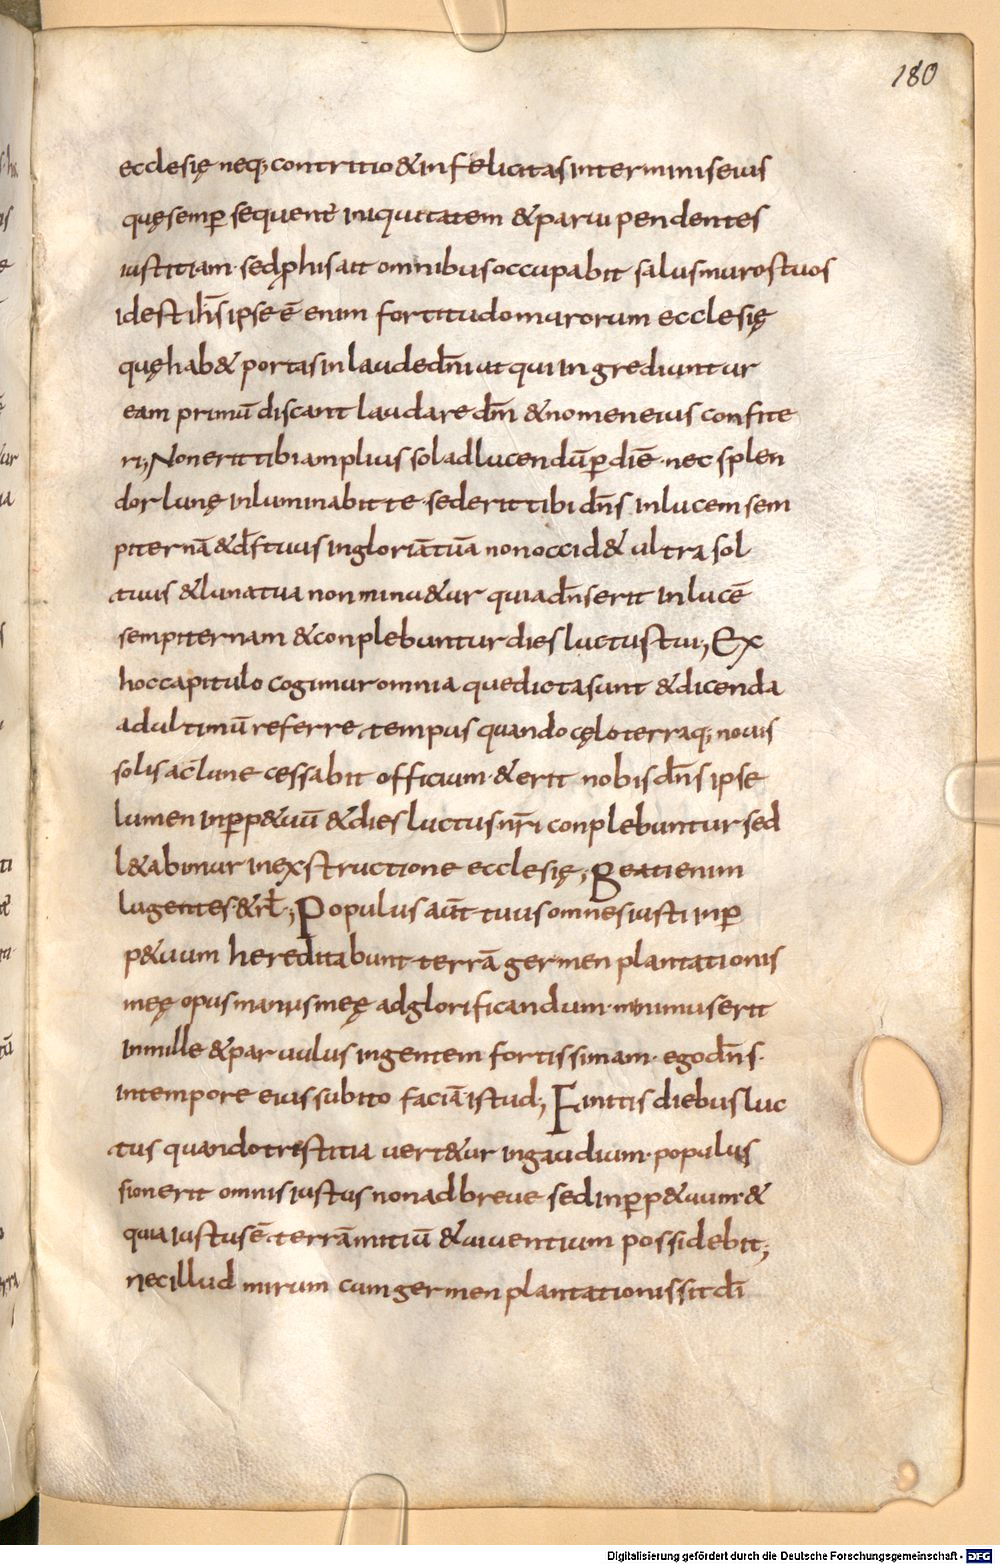 180
ecclesię neq; contritio & infelicitas interminis eius
quę semp̱ sequent̄ iniquitatem & parui pendentes
iustitiam· sed p̱ his ait omnibus occupabit salus muros tuos
id est ih̄s ipse ē enim fortitudo murorum ecclesię
quę hab& portas in laude dn̄i ut qui ingrediuntur
eam primū discant laudare dn̄m & nomen eius confite
ri; Non erit tibi amplius sol ad lucendū p̱ diē· nec splen
dor lunę inluminabit te· sed erit tibi dn̄s in lucem sem
piternā & ds̄ tuus in gloriā tuā non occid& ultra sol
tuus & luna tua non minu&ur quia dn̄s erit in lucē
sempiternam & conplebuntur dies luctus tui; Ex
hoc capitulo cogimur omnia que dicta sunt & dicenda
ad ultimū referre tempus quando cęlo terraq; nouis
solis ac lune cessabit officium· & erit nobis dn̄s ipse
lumen in p̱p&uū & dies luctus nr̄i conplebuntur sed
l&abimur in exstructione ecclesię; Beati enim
lugentes· & rl̄; Populus aūt tuus omnes iusti in p̱
p&uum hereditabunt terrā germen plantationis
meę opus manus meę ad glorificandum· minimus erit
in mille & paruulus in gentem fortissimam· ego dn̄s·
in tempore eius subito faciā istud; Finitis diebus luc
tus quando tristitia uert&ur in gaudium· populus
sion erit omnis iustus non ad breue sed in p̱p&uum· &
quia iustus ē terrā mitiū & uiuentium possidebit;
nec illud mirum cum germen plantationis sit dī
Digitalisierung gefördert durch die Deutsche Forschungsgemeinschaft - DFG